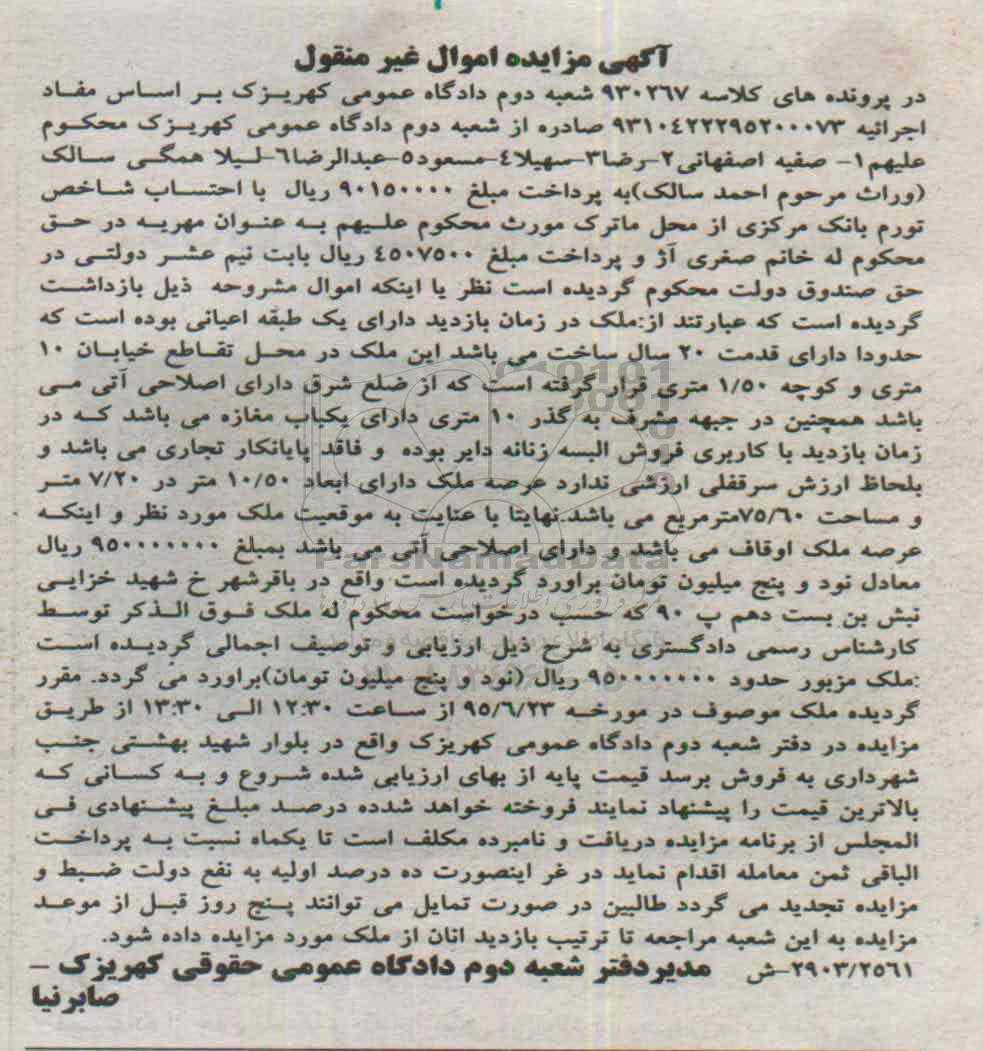 آگهی مزایده اموال غیر منقول
در پرونده های کلاسه ۹۳۰۲۶۷ شعبه دوم دادگاه عمومی کهریزک بر اساس مفاد
اجرائیه ۹۳۱۰۴۲۲۲۹۵۲۰۰۰۷۳ صادره از شعبه دوم دادگاه عمومی کهریزک محکوم
علیهم۱- صفیه اصفهانی۲-رضا۳-سهیلا۴-مسعود۵-عبدالرضا۶-لیلا همگی سالک
(وراث مرحوم احمد سالک)به پرداخت مبلغ ۹۰۱۵۰۰۰۰ ریال با احتساب شاخص
تورم بانک مرکزی از محل ماترک مورث محکوم علیهم به عنوان مهریه در حق
محکوم له خانم صغری آژ و پرداخت مبلغ ۴۵۰۷۵۰۰ ریال بابت نیم عشر دولتی در
حق صندوق دولت محکوم گردیده است نظر یا اینکه اموال مشروحه ذیل بازداشت
گردیده است که عبارتند از:ملک در زمان بازدید دارای یک طبقه اعیانی بوده است که
حدودا دارای قدمت ۲۰ سال ساخت می باشد این ملک در محل تقاطع خیابان ۱۰
متری و کوچه ۱/۵۰ متری قرار گرفته است که از ضلع شرق دارای اصلاحی آتی می
باشد همچنین در جبهه مشرف به گذر ۱۰ متری دارای یکباب مغازه می باشد که در
زمان بازدید با کاربری فروش البسه زنانه دایر بوده و فاقد پایانکار تجاری می باشد و
بلحاظ ارزش سرقفلی ارزشی ندارد عرصه ملک دارای ابعاد ۱۰/۵۰ متر در ۷/۲۰ متر
و مساحت ۷۵/۶۰مترمربع می باشد.نهایتا با عنایت به موقعیت ملک مورد نظر و اینکه
عرصه ملک اوقاف می باشد و دارای اصلاحی آتی می باشد بمبلغ ۹۵۰۰۰۰۰۰۰ ریال
معادل نود و پنج میلیون تومان براورد گردیده است واقع در باقرشهر خ شهید خزایی
نبش بن بست دهم پ ۹۰ که حسب درخواست محکوم له ملک فوق الذکر توسط
کارشناس رسمی دادگستری به شرح ذیل ارزیابی و توصیف اجمالی گردیده است
:ملک مزبور حدود ۹۵۰۰۰۰۰۰۰ ریال (نود و پنج میلیون تومان)براورد می گردد. مقرر
گردیده ملک موصوف در مورخه ۹۵/۶/۲۳ از ساعت ۱۲:۳۰ الی ۱۳:۳۰ از طریق
مزایده در دفتر شعبه دوم دادگاه عمومی کهریزک واقع در بلوار شهید بهشتی جنب
شهرداری به فروش برسد قیمت پایه از بهای ارزیابی شده شروع و به کسانی که
بالاترین قیمت را پیشنهاد نمایند فروخته خواهد شدده درصد مبلغ پیشنهادی فی
المجلس از برنامه مزایده دریافت و نامبرده مکلف است تا یکماه نسبت به پرداخت
الباقی ثمن معامله اقدام نماید در غر اینصورت ده درصد اولیه به نفع دولت ضبط و
مزایده تجدید می گردد طالبین در صورت تمایل می توانند پنج روز قبل از موعد
مزایده به این شعبه مراجعه تا ترتیب بازدید انان از ملک مورد مزایده داده شود.
۲۹۰۳/۲۵۶۱-ش مدیردفتر شعبه دوم دادگاه عمومی حقوقی کهریزک -
صابرنیا
ParsNamadData